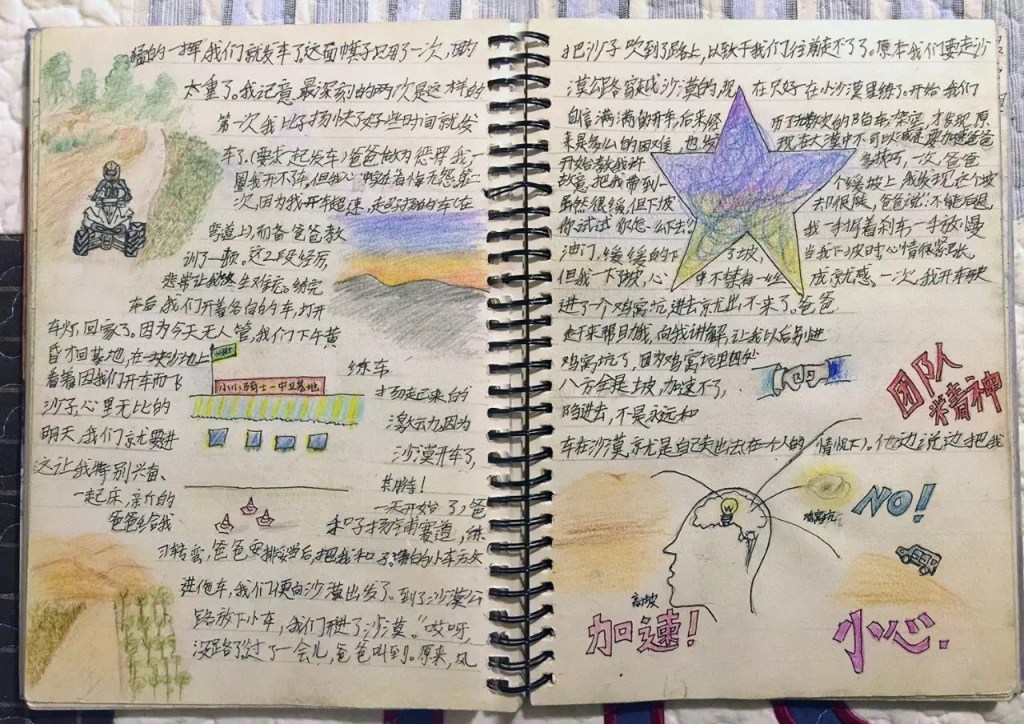 猛的一挥,我们就发车了。这面棋子只用了一次,因为
太重了。我记意最深刻的两次是这样的
第一次我比子扬快了好些时间就发
车了。(要求一起发车)爸爸做为惩罚,我一
星我开不车。但我心中
次,因为我开车超速,
弯道上),而备爸爸教
训了一顿。这2段经历,
非常让我 生难忘。练完
车后,我们开着各自的车,打开
车灯,回家了。因为今天无人管,我们下午黄
昏才回基地,在一块沙地上 练车
看着因我们开车而飞 扬起来的
小小骑士一中卫基地
沙子,心里无比的 激动,因为
明天,我们就要进 沙漠开车了,
这让我特别兴奋、 其期待!
一起床,亲爱的 一天开始了,爸
爸爸给我 和子扬 赛道,练
习转弯,爸爸 排妥当后,把我和子 的小车
进拖车,我们便向沙漠出发了。到了沙漠公
路放下小车,我们 进了沙漠。“哎呀,
没路了”过了一会儿,爸爸叫到。原来,风
把沙子吹到了路上,以致于我们往前走不了了。原本我们要走沙
漠公路穿越沙漠的,现 在只好在小沙漠里练了。开始我们
自信满满的开车,后来经 历无数次的陷车 ,才发现,原
来是多么的困难,也发 现,在大漠中不可以
开始教我 技巧,一次,爸爸
故意把我带到一 个缓坡上,我发现,这个坡
虽然很缓,但下坡 却很陡,爸爸说:“不能后退,
你试试 怎么下去?” 我一手捏着刹车,一手放慢
油门,缓缓的下 了坡, 当我下坡时心情很紧张,
但我一下坡,心 中不禁有一些 成就感。一次,我开车
进了一个鸡窝坑,进去就出不来了。爸爸
走下来帮助我,向我讲解,让我以后别进
鸡窝坑了,因为鸡窝坑里四处
八方全是上坡,加速不了,
陷进去,不是永远和
团队
精神
车在沙漠,就是自己走出去(在一个人的情况下)。他边说边把我
NO!
鸡窝坑
高坡
加速!
小心.